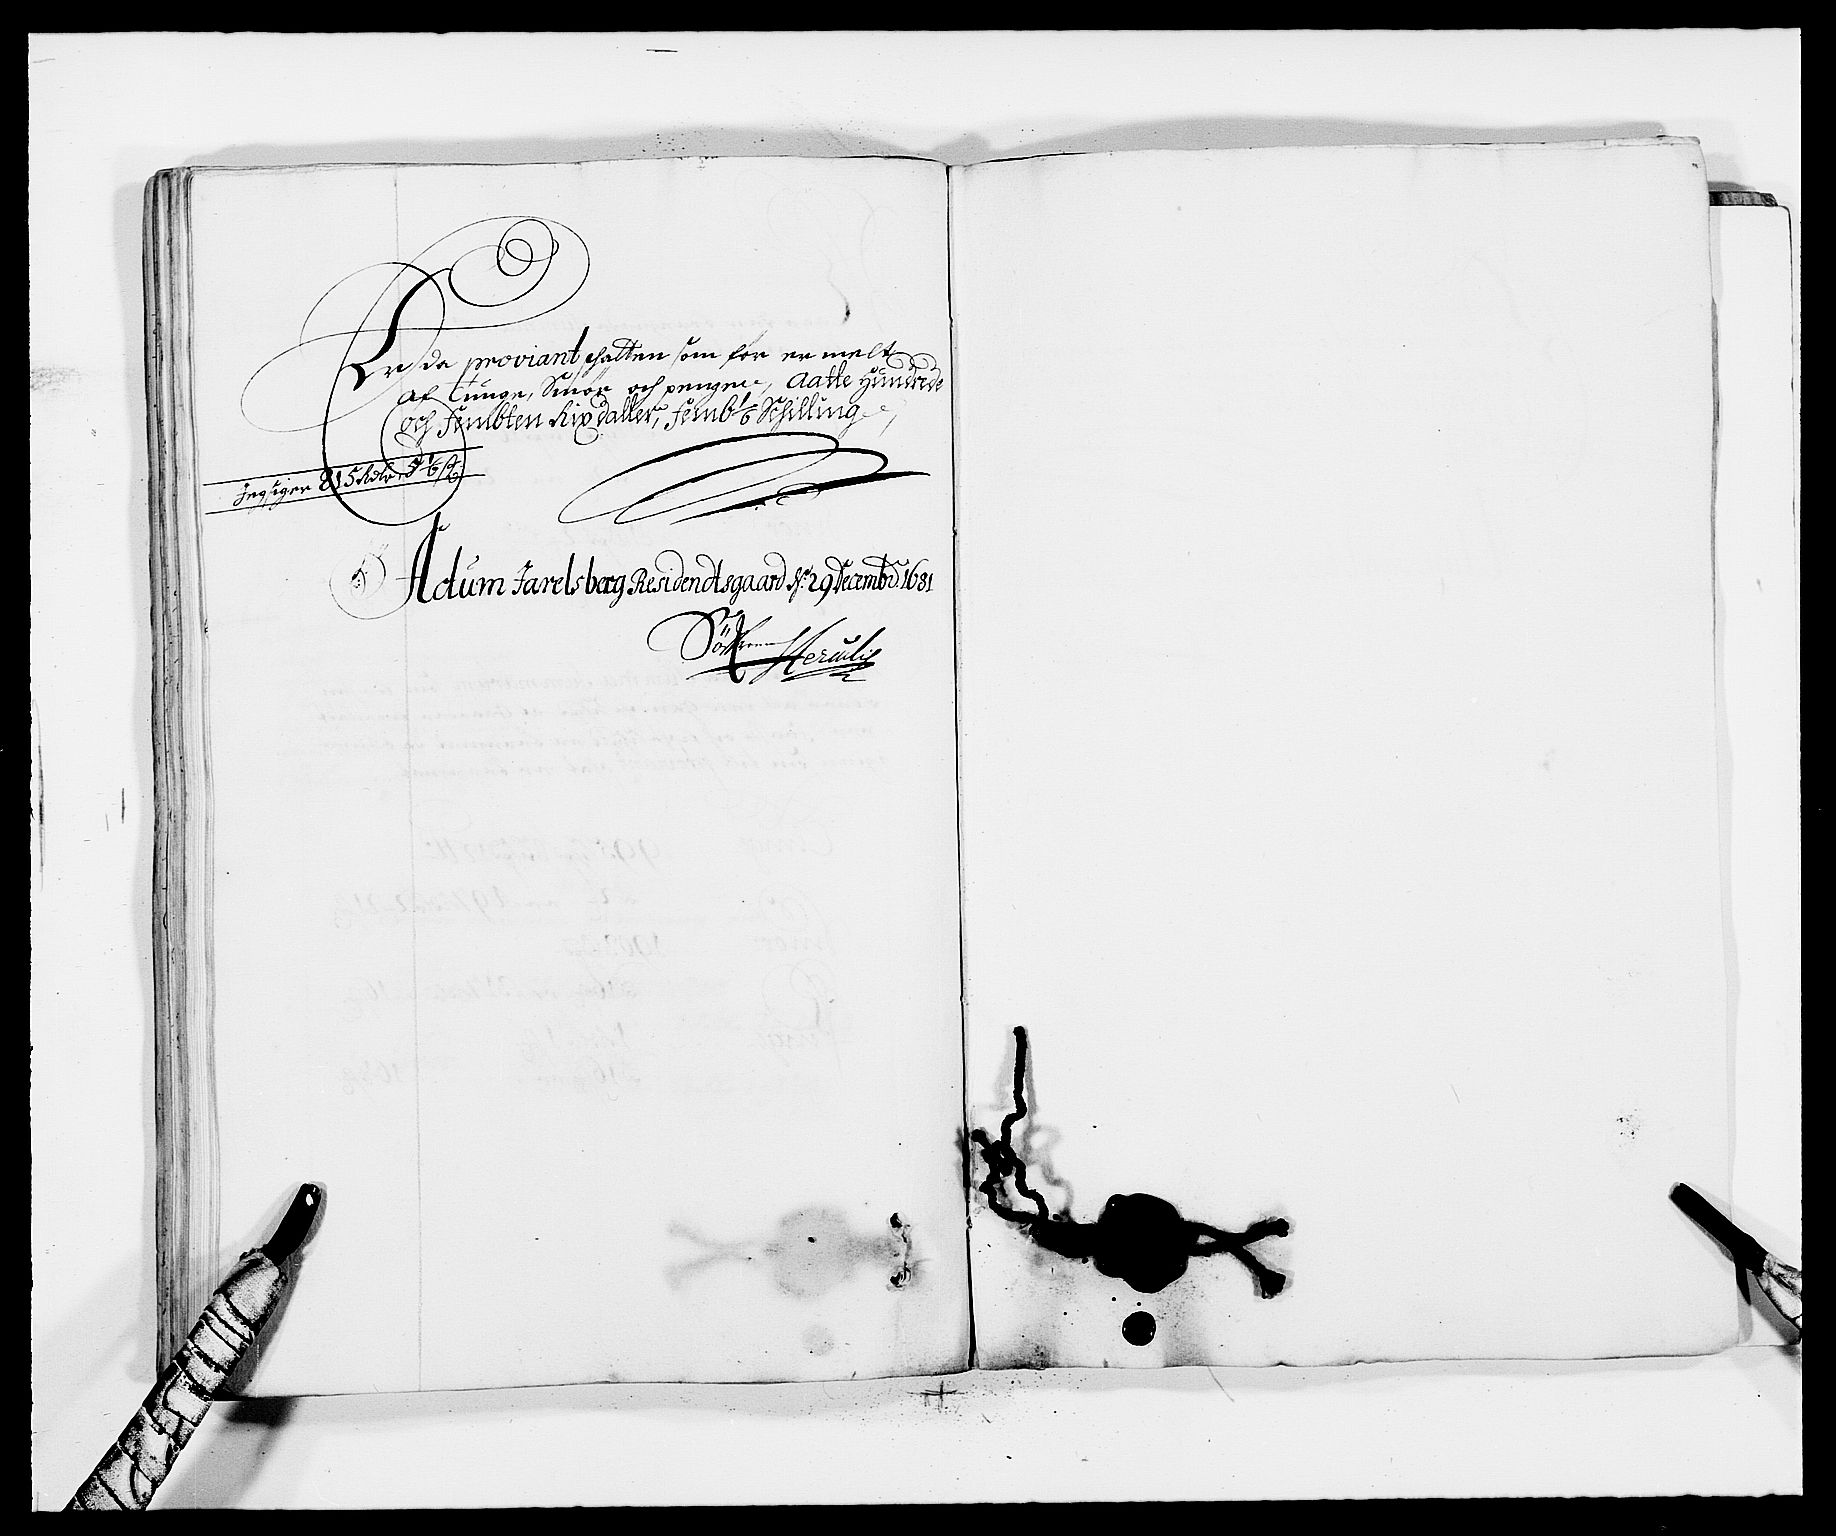 Er da proviant schatten som for er melt
af Tunge, Smör och pengene, Aatte Hundrede
och Fembten Rixdaller, Femb 1/6 Schilling
Jeg siger 815 Rdr 5 1/6 ß
Adum Jarelsberg Residendtsgaard d. 29 Decembr 1681
Sörren Herculis